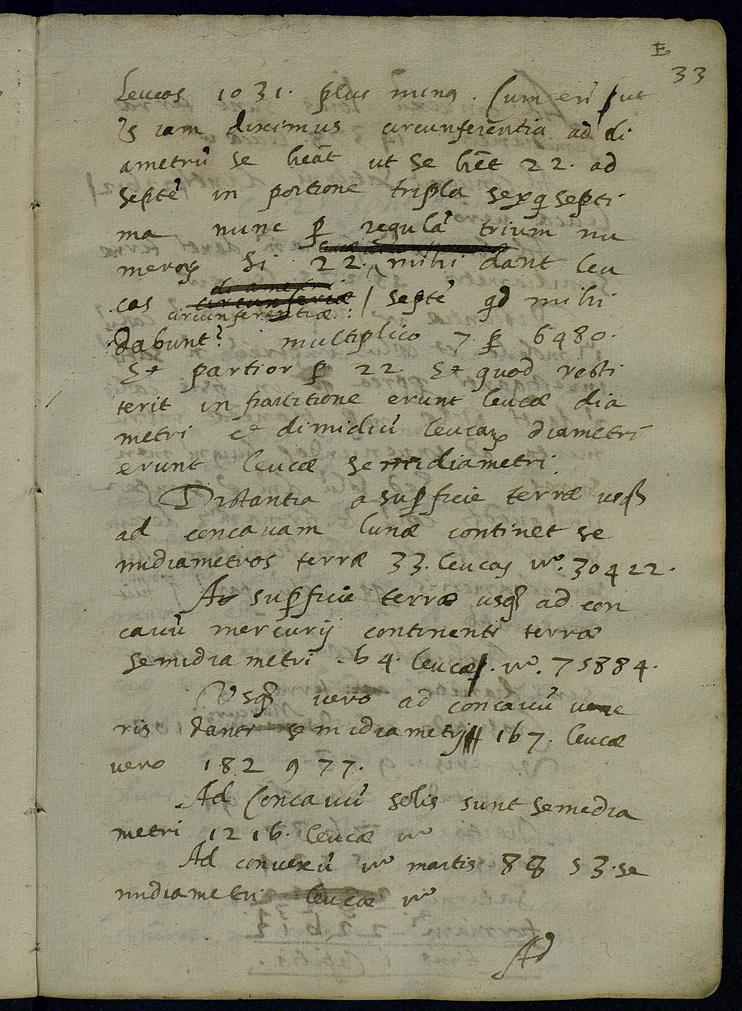 E
33
Leucos 1031. plus minꝰ. Cum eñ ut
iam diximus circunferentia ad di
ametrũ se heãt ut se hẽt 22. ad
septẽ in portione tripla sexq̃ septi
ma nunc ꝑ regulã trium nu
meroꝝ Si 22. mihi dant leu
cas diametri circunferiæ circunferentiæ: septẽ qd mihi
dabunt? multiplico 7 ꝑ 6480.
Et partior ꝑ 22. Et quod resti
terit in partitione erunt leucæ dia
metri et dimidiũ leucaꝝ diametri
erunt leucæ semidiametri.
Distantia a suꝑficie terræ usqꝫ
ad concavam lunæ continet se
midiametros terræ 33. leucas vº. 30422.
A suꝑficie terræ usqꝫ ad con
cavũ mercurij continenti terræ
semidiametri .64. leucæ. vº. 75884.
Usqꝫ vero ad concavũ vene
ris dantr semidiametri 167. leucæ
vero 182977.
Ad Concavũ solis sunt semedia
metri 1216. leucæ vº
Ad convexũ vº martis 8853. se
midiametri leucæ vº
Ad